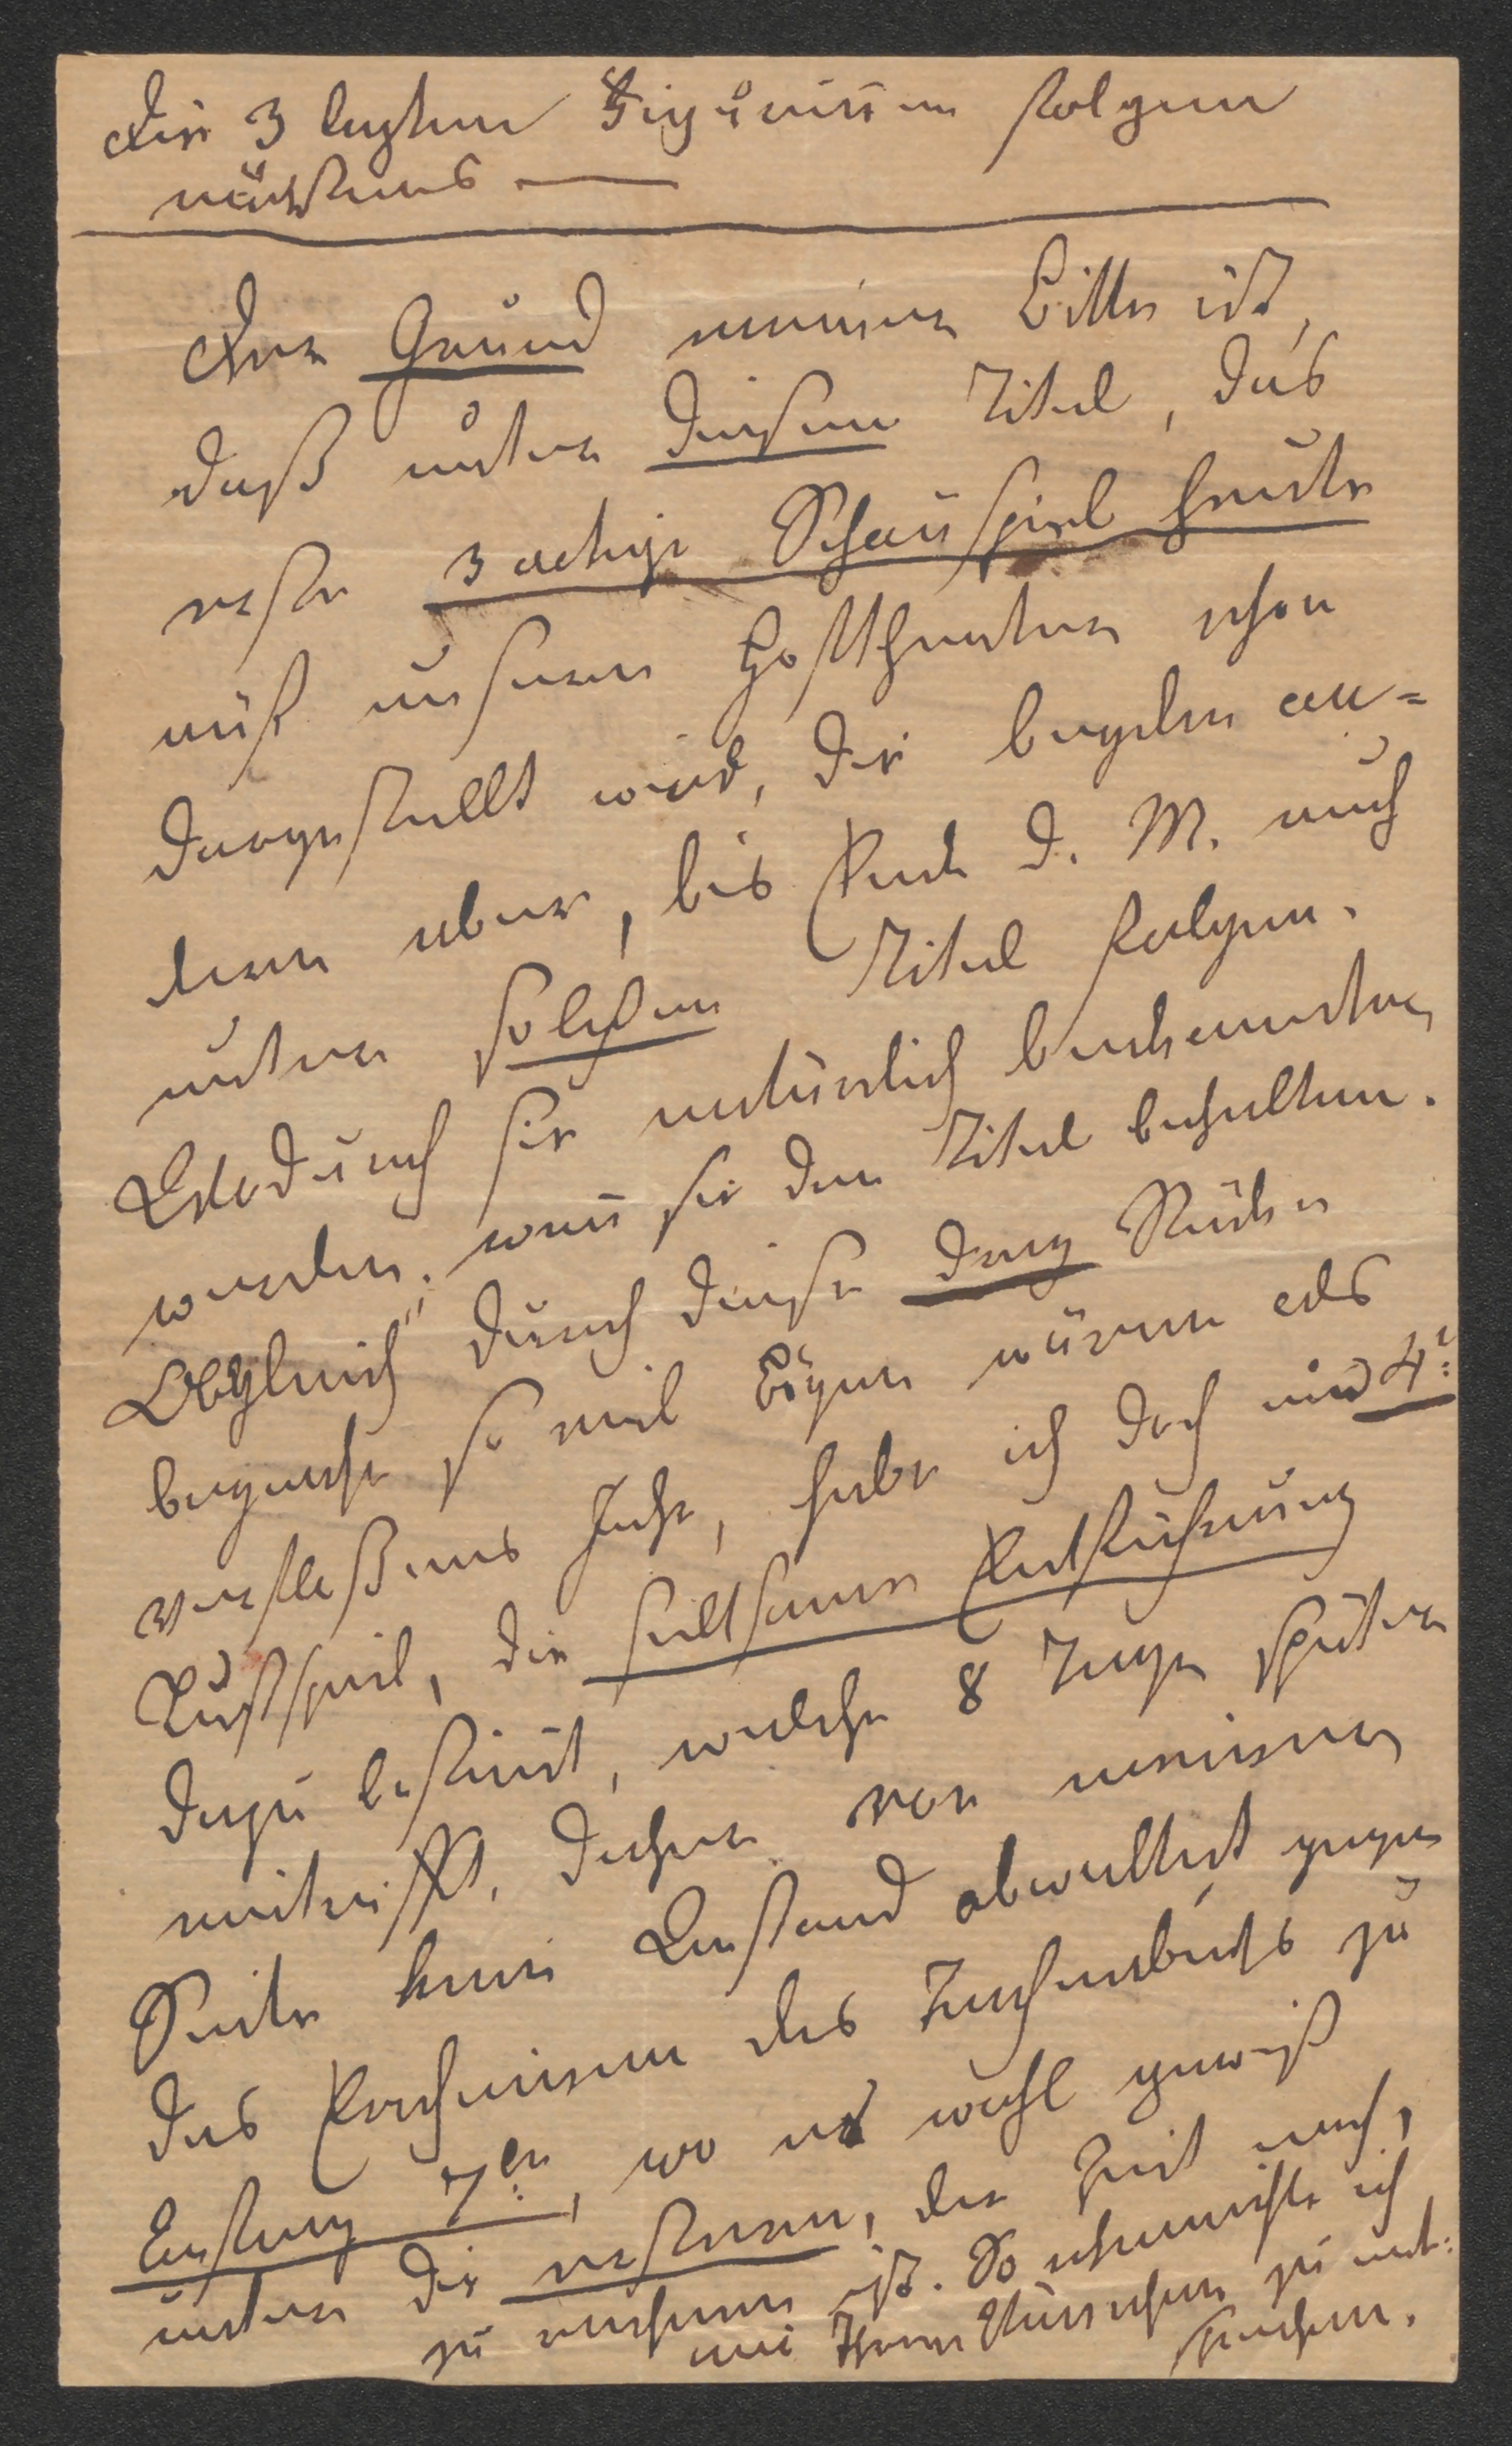 Die 3 letzten Figurinen folgen
nächstens —
Der Grund meiner Bitte ist,
daß unter diesem Titel, das
erste 3 actige Schauspiel heute
auf unserem Hoftheater schon
dargestellt wird, die beyden an=
dern aber, bis Ende d. M. auch
unter solchem Titel folgen.
Wodurch sie natürlich bekannter
werden, wenn sie den Titel behalten.
Obgleich durch diese drey Stücke
beynahe so viel Bögen wären als
verfloßenes Jahr, habe ich doch ein 4.
Lustspiel, die seltsame Entführung
dazu bestimt, welche 8 Tage später
eintrifft, daher von meiner
Seite kein Anstand obwaltet gegen
das Erscheinen des Taschenbuchs zu
Anfang 7br, wo es wohl gewiß
unter die ersteren, der Zeit nach,
zu rechnen ist. So schmeichle ich
mir Ihren Wünschen zu ent:
sprechen.